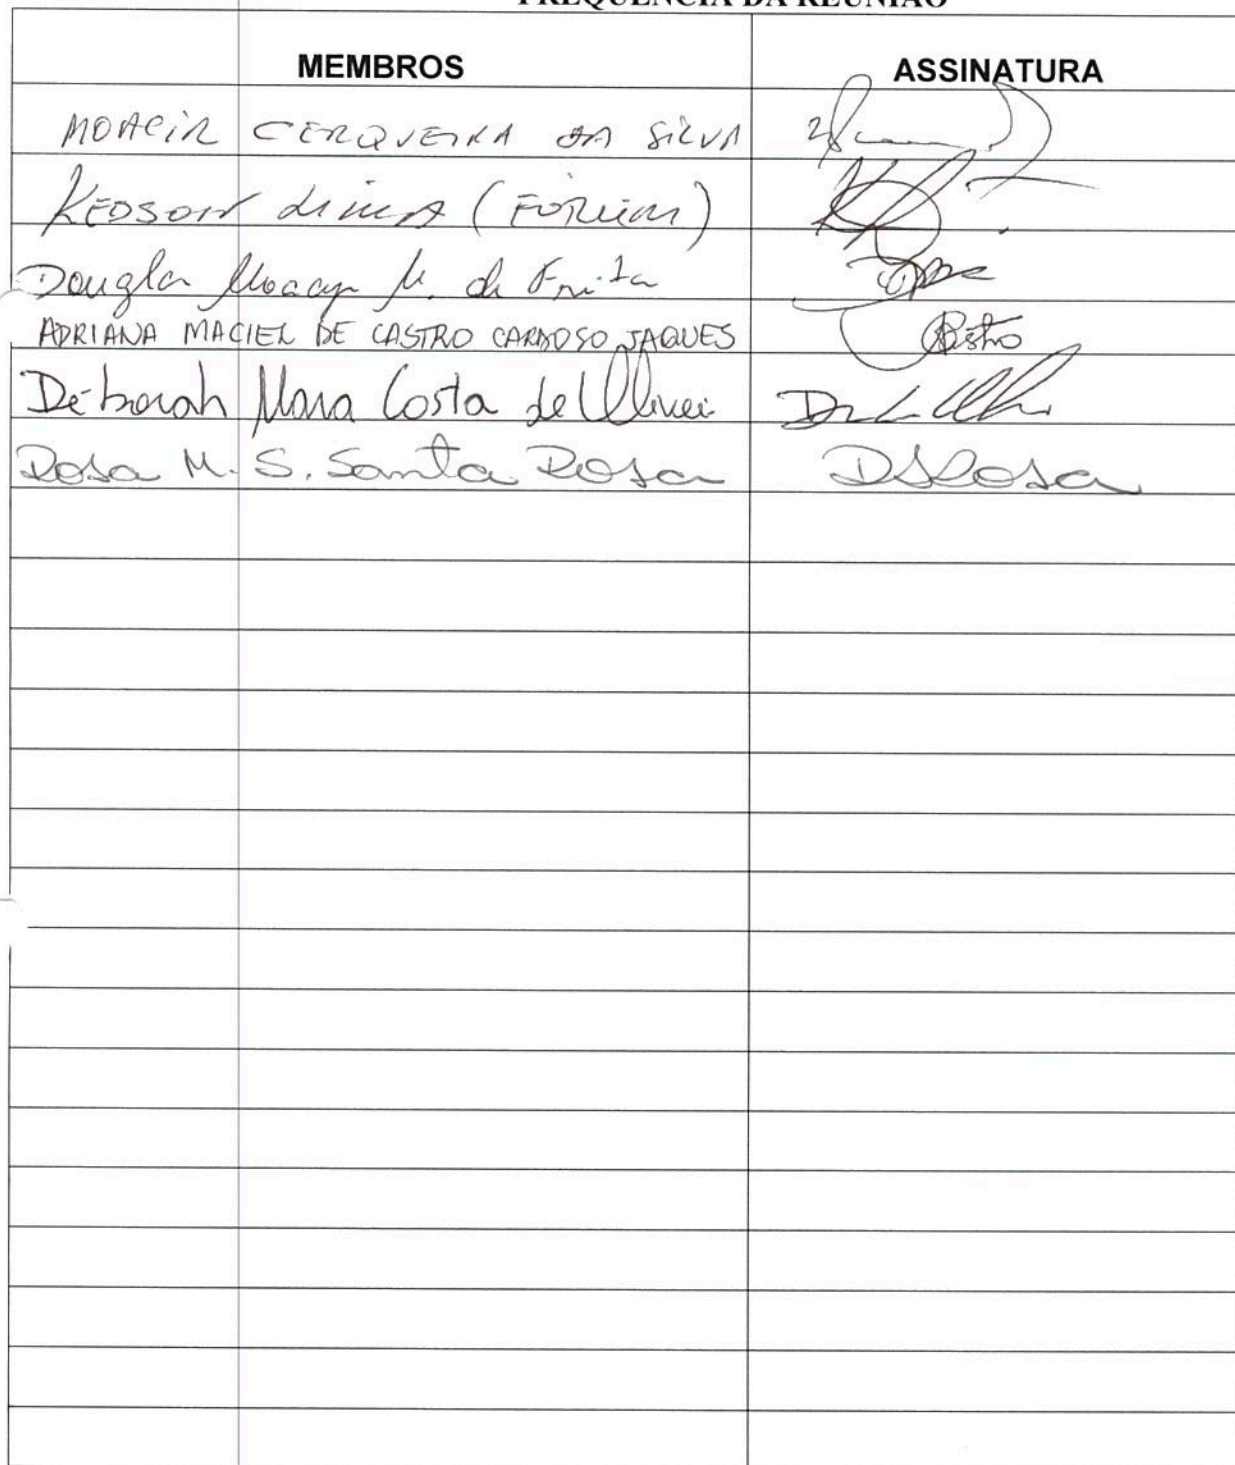 FREQUÊNCIA DA REUNIÃO
MEMBROS ASSINATURA
MOACIR CERQUEIRA DA SILVA
KEDSON LIMA (FÓRUM)
Douglas Moacyr M. de
ADRIANA MACIEL DE CASTRO CARDOSO JAQUES Castro
Déborah Mara Costa de Olivei
Rosa M. S. Santa Rosa RSRosa